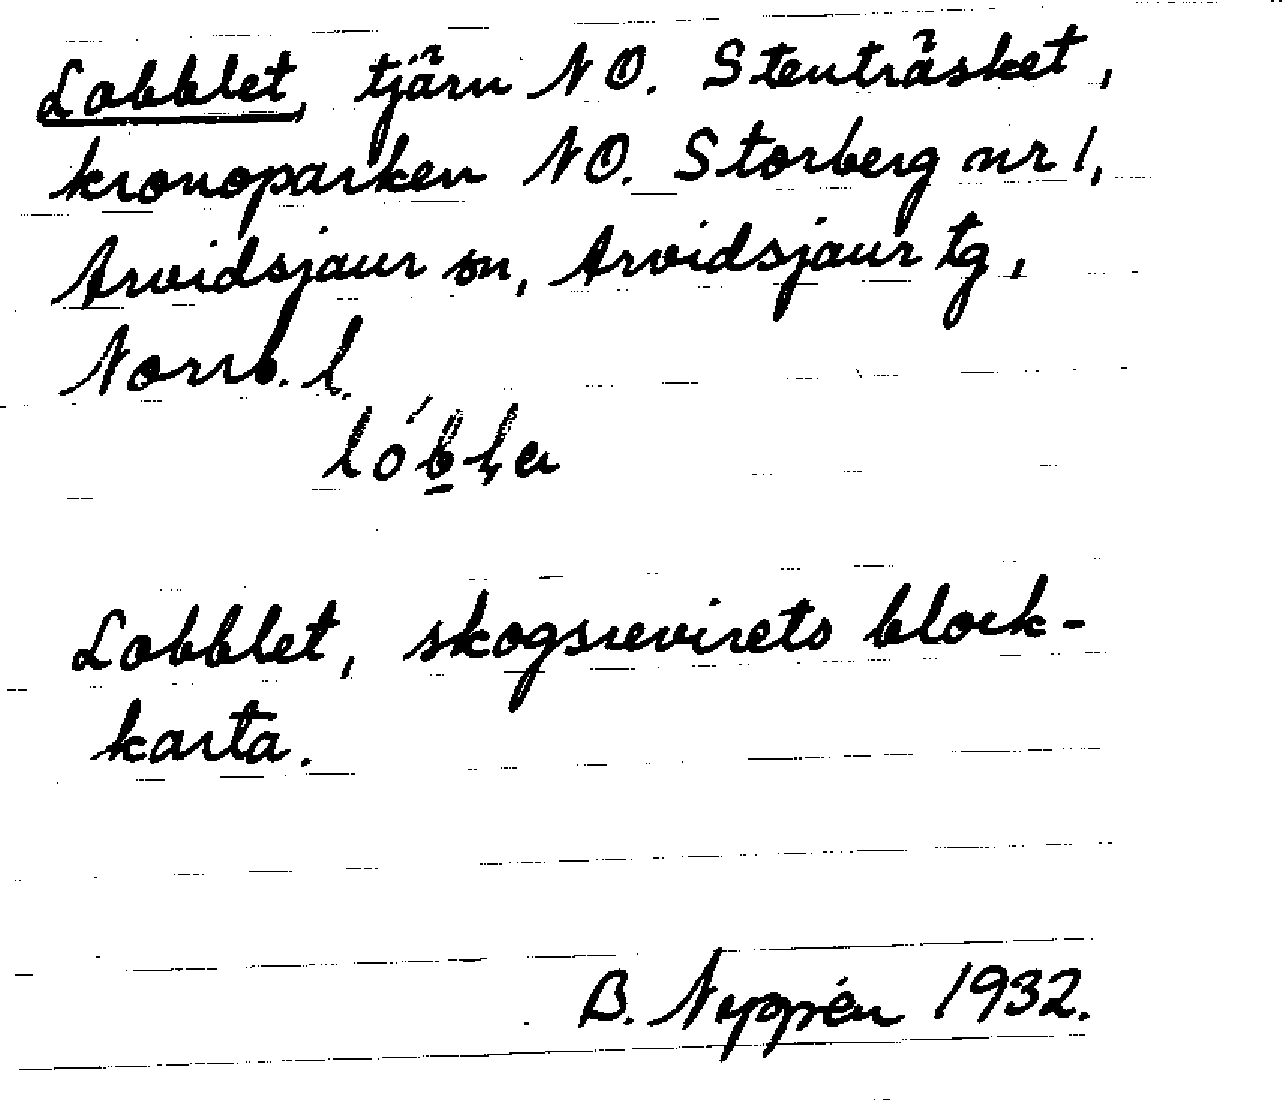 Lobblet, tjärn NO. Stenträsket,
kronoparken NO. Storberg nr 1,
Arvidsjaur sn, Arvidsjaur tg,
Norrb. l.
Lobblet, skogsrevirets block-
karta.
B. Nygrén 1932.